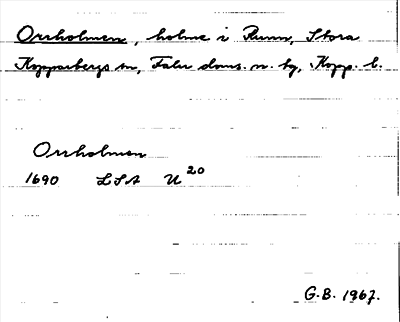 Orrholmen, holme i Runn, Stora
Kopparbergs sn, Falu doms. n. tg, Kopp. l.
Orrholmen
1690 LSA U20
G.B. 1967.